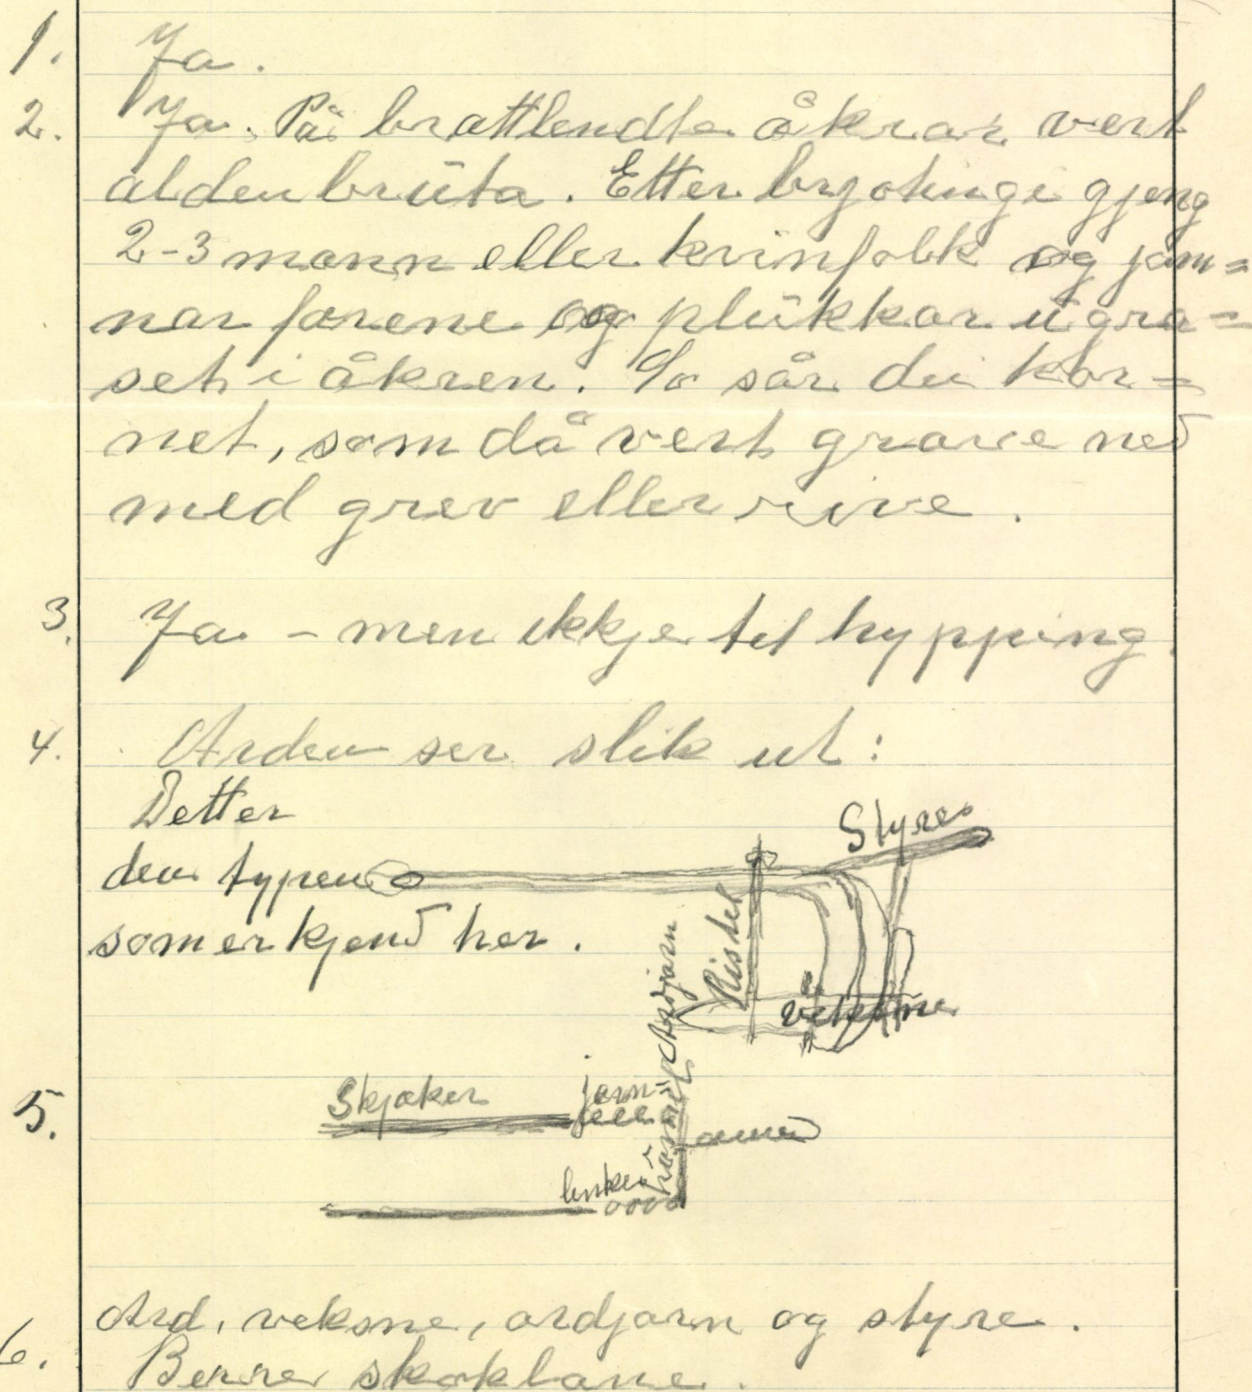 1. Ja.
2. Ja. På brattlendte åkrar vert
alden brúta. Etter brjotingi gjeng
2-3 mann eller kvinfolk og jam=
nar forene og plukkar ugra=
set i åkren. So sår dei kor=
net, som då vert grave ned
med grev eller rive.
3. Ja - men ikkje til hypping.
4. Arden ser slik ut:
Detter
den typen
som er kjend her.
Styre
Ristel
Ardjarn
veksne
5. Skjøker jarn=
lenker
Ard, veksne, ardjarn og styre.
6. Berre skoklane.